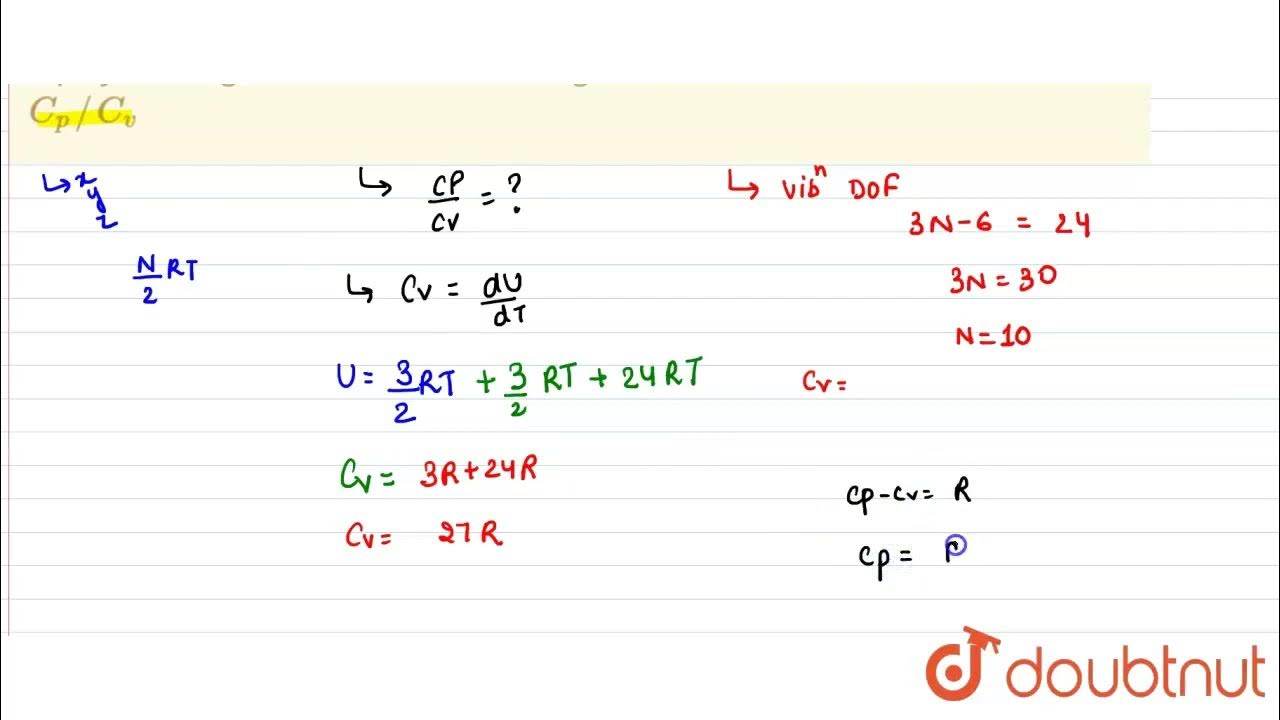 C_p / C_v
↳ x
y
z
N/2 RT
↳ CP/CV = ?
↳ Cv = dU/dT
U = 3/2 RT + 3/2 RT + 24RT
Cv = 3R + 24R
Cv = 27R
↳ Vibⁿ DOF
3N - 6 = 24
3N = 30
N = 10
Cv =
Cp - Cv = R
Cp =
doubtnut